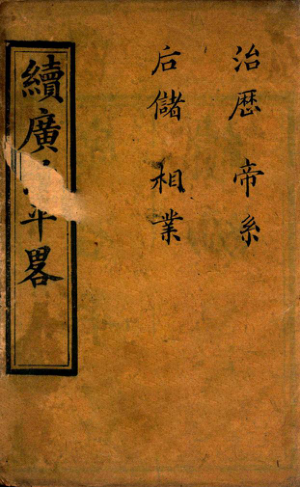 治歷 帝系
后儲 相業
續廣平畧